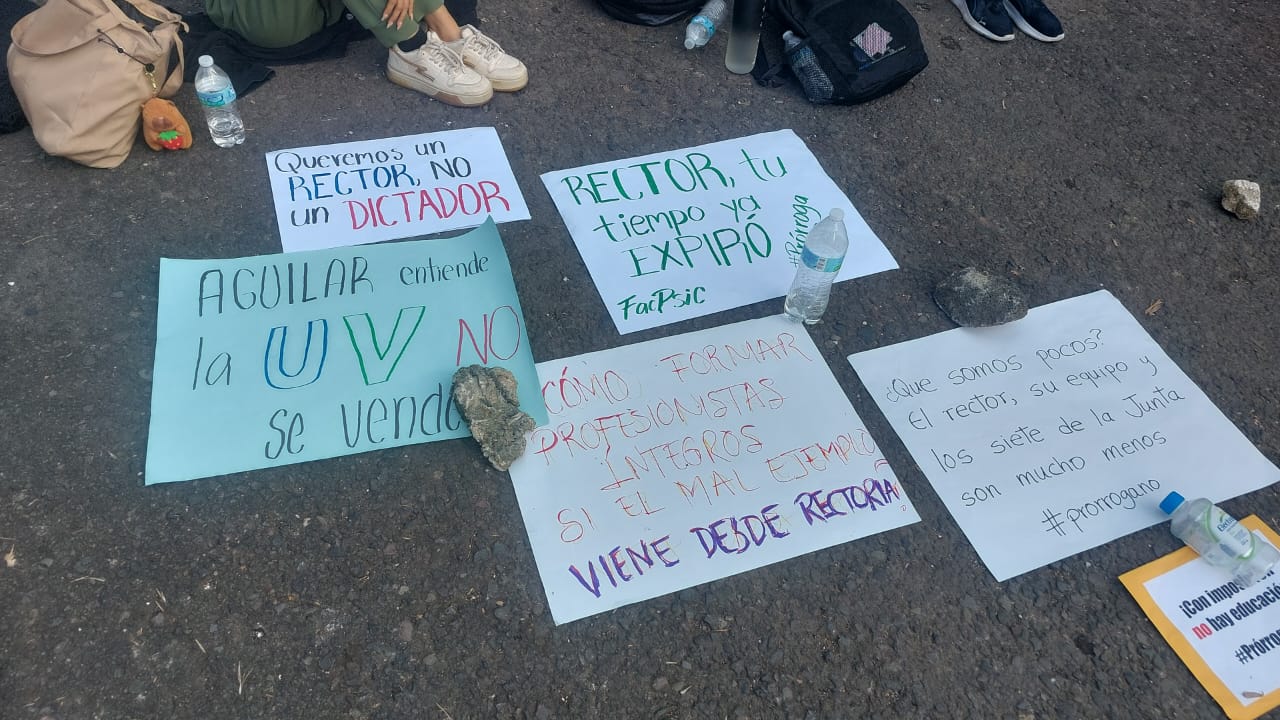 Queremos un
RECTOR, NO
un DICTADOR
RECTOR, tu
tiempo ya
EXPIRÓ
#Prórroga
FacPsic
AGUILAR entiende
la UV NO
se vende
CÓMO FORMAR
PROFESIONISTAS
ÍNTEGROS
SI EL MAL EJEMPLO
VIENE DESDE RECTORIA
¿Que somos pocos?
El rector, su equipo y
los siete de la Junta
son mucho menos
#prorrogano
¡Con
no hay